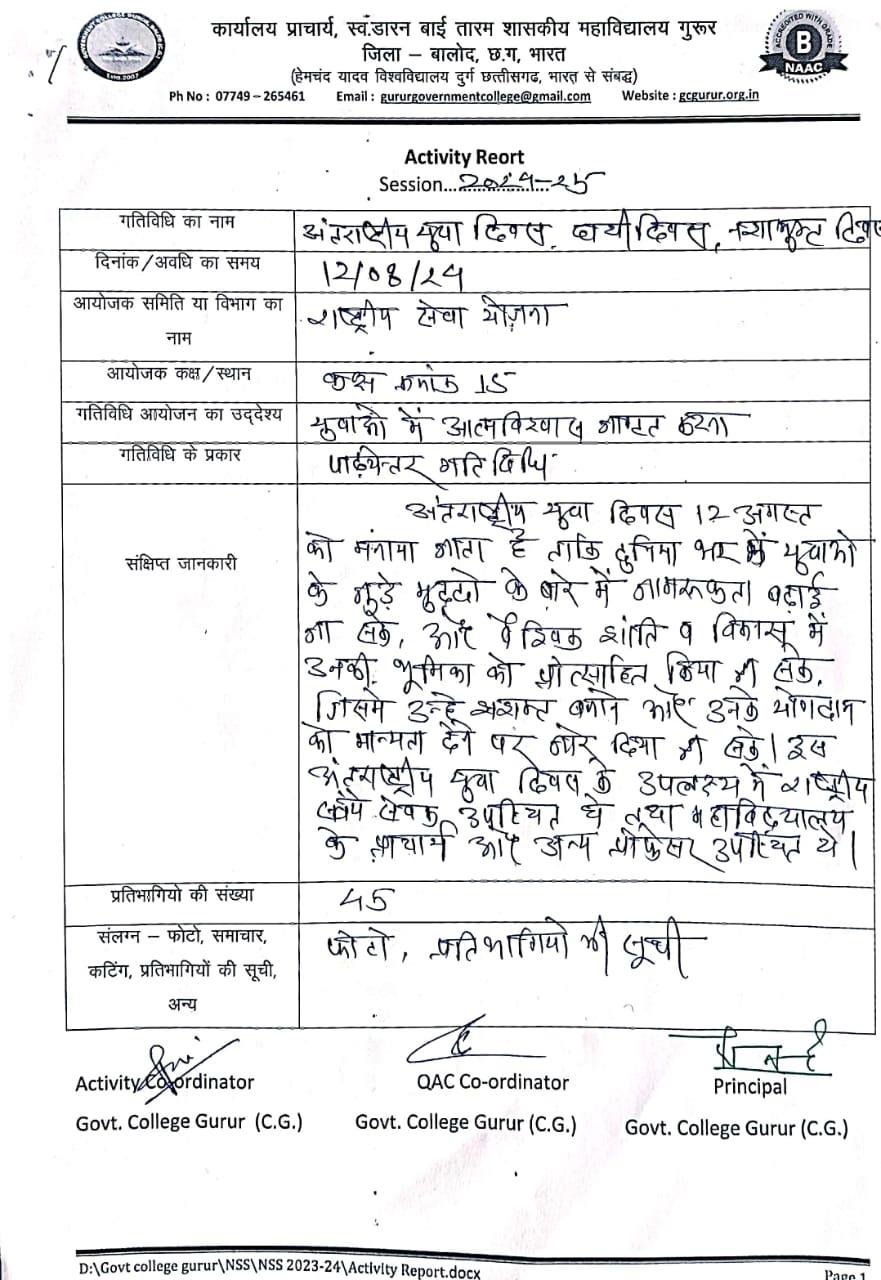 कार्यालय प्राचार्य, स्व.डारन बाई तारम शासकीय महाविद्यालय गुरूर
जिला – बालोद, छ.ग, भारत
(हेमचंद यादव विश्वविद्यालय दुर्ग छत्तीसगढ, भारत से संबद्ध)
Ph No : 07749 – 265461 Email : gururgovernmentcollege@gmail.com Website : gcgurur.org.in
ACCREDITED WITH GRADE
B
NAAC
Activity Reort
Session...2024-25
गतिविधि का नाम
अंतराष्ट्रीय युवा दिवस, दिवस,
दिनांक/अवधि का समय
12/08/24
आयोजक समिति या विभाग का
नाम
राष्ट्रीय सेवा योजना
आयोजक कक्ष/स्थान
कक्ष क्रमांक 15
गतिविधि आयोजन का उद्देश्य
युवाओ में आत्मविश्वास करना
गतिविधि के प्रकार
पाठ्येत्तर गतिविधि
संक्षिप्त जानकारी
अंतराष्ट्रीय युवा दिवस 12 अगस्त
को मनाया जाता है ताकि दुनिया भर में युवाओ
के जुड़े मुद्दो के बारे में जागरूकता बढ़ाई
जा सके, और वैश्विक शांति व विकास में
उनकी भूमिका को प्रोत्साहित किया जा सके,
जिसमे उन्हे सशक्त बनाने और उनके योगदान
को मान्यता देने पर जोर दिया जा सके। इस
अंतराष्ट्रीय युवा दिवस के उपलक्ष्य में राष्ट्रीय
सेवक उपस्थित थे तथा महाविद्यालय
के प्राचार्य और अन्य प्रोफेसर उपस्थित थे।
प्रतिभागियो की संख्या
45
संलग्न – फोटो, समाचार,
कटिंग, प्रतिभागियों की सूची,
अन्य
फोटो, प्रतिभागियो की सूची
Activity Co-ordinator QAC Co-ordinator Principal
Govt. College Gurur (C.G.) Govt. College Gurur (C.G.) Govt. College Gurur (C.G.)
D:\Govt college gurur\NSS\NSS 2023-24\Activity Report.docx Page 1